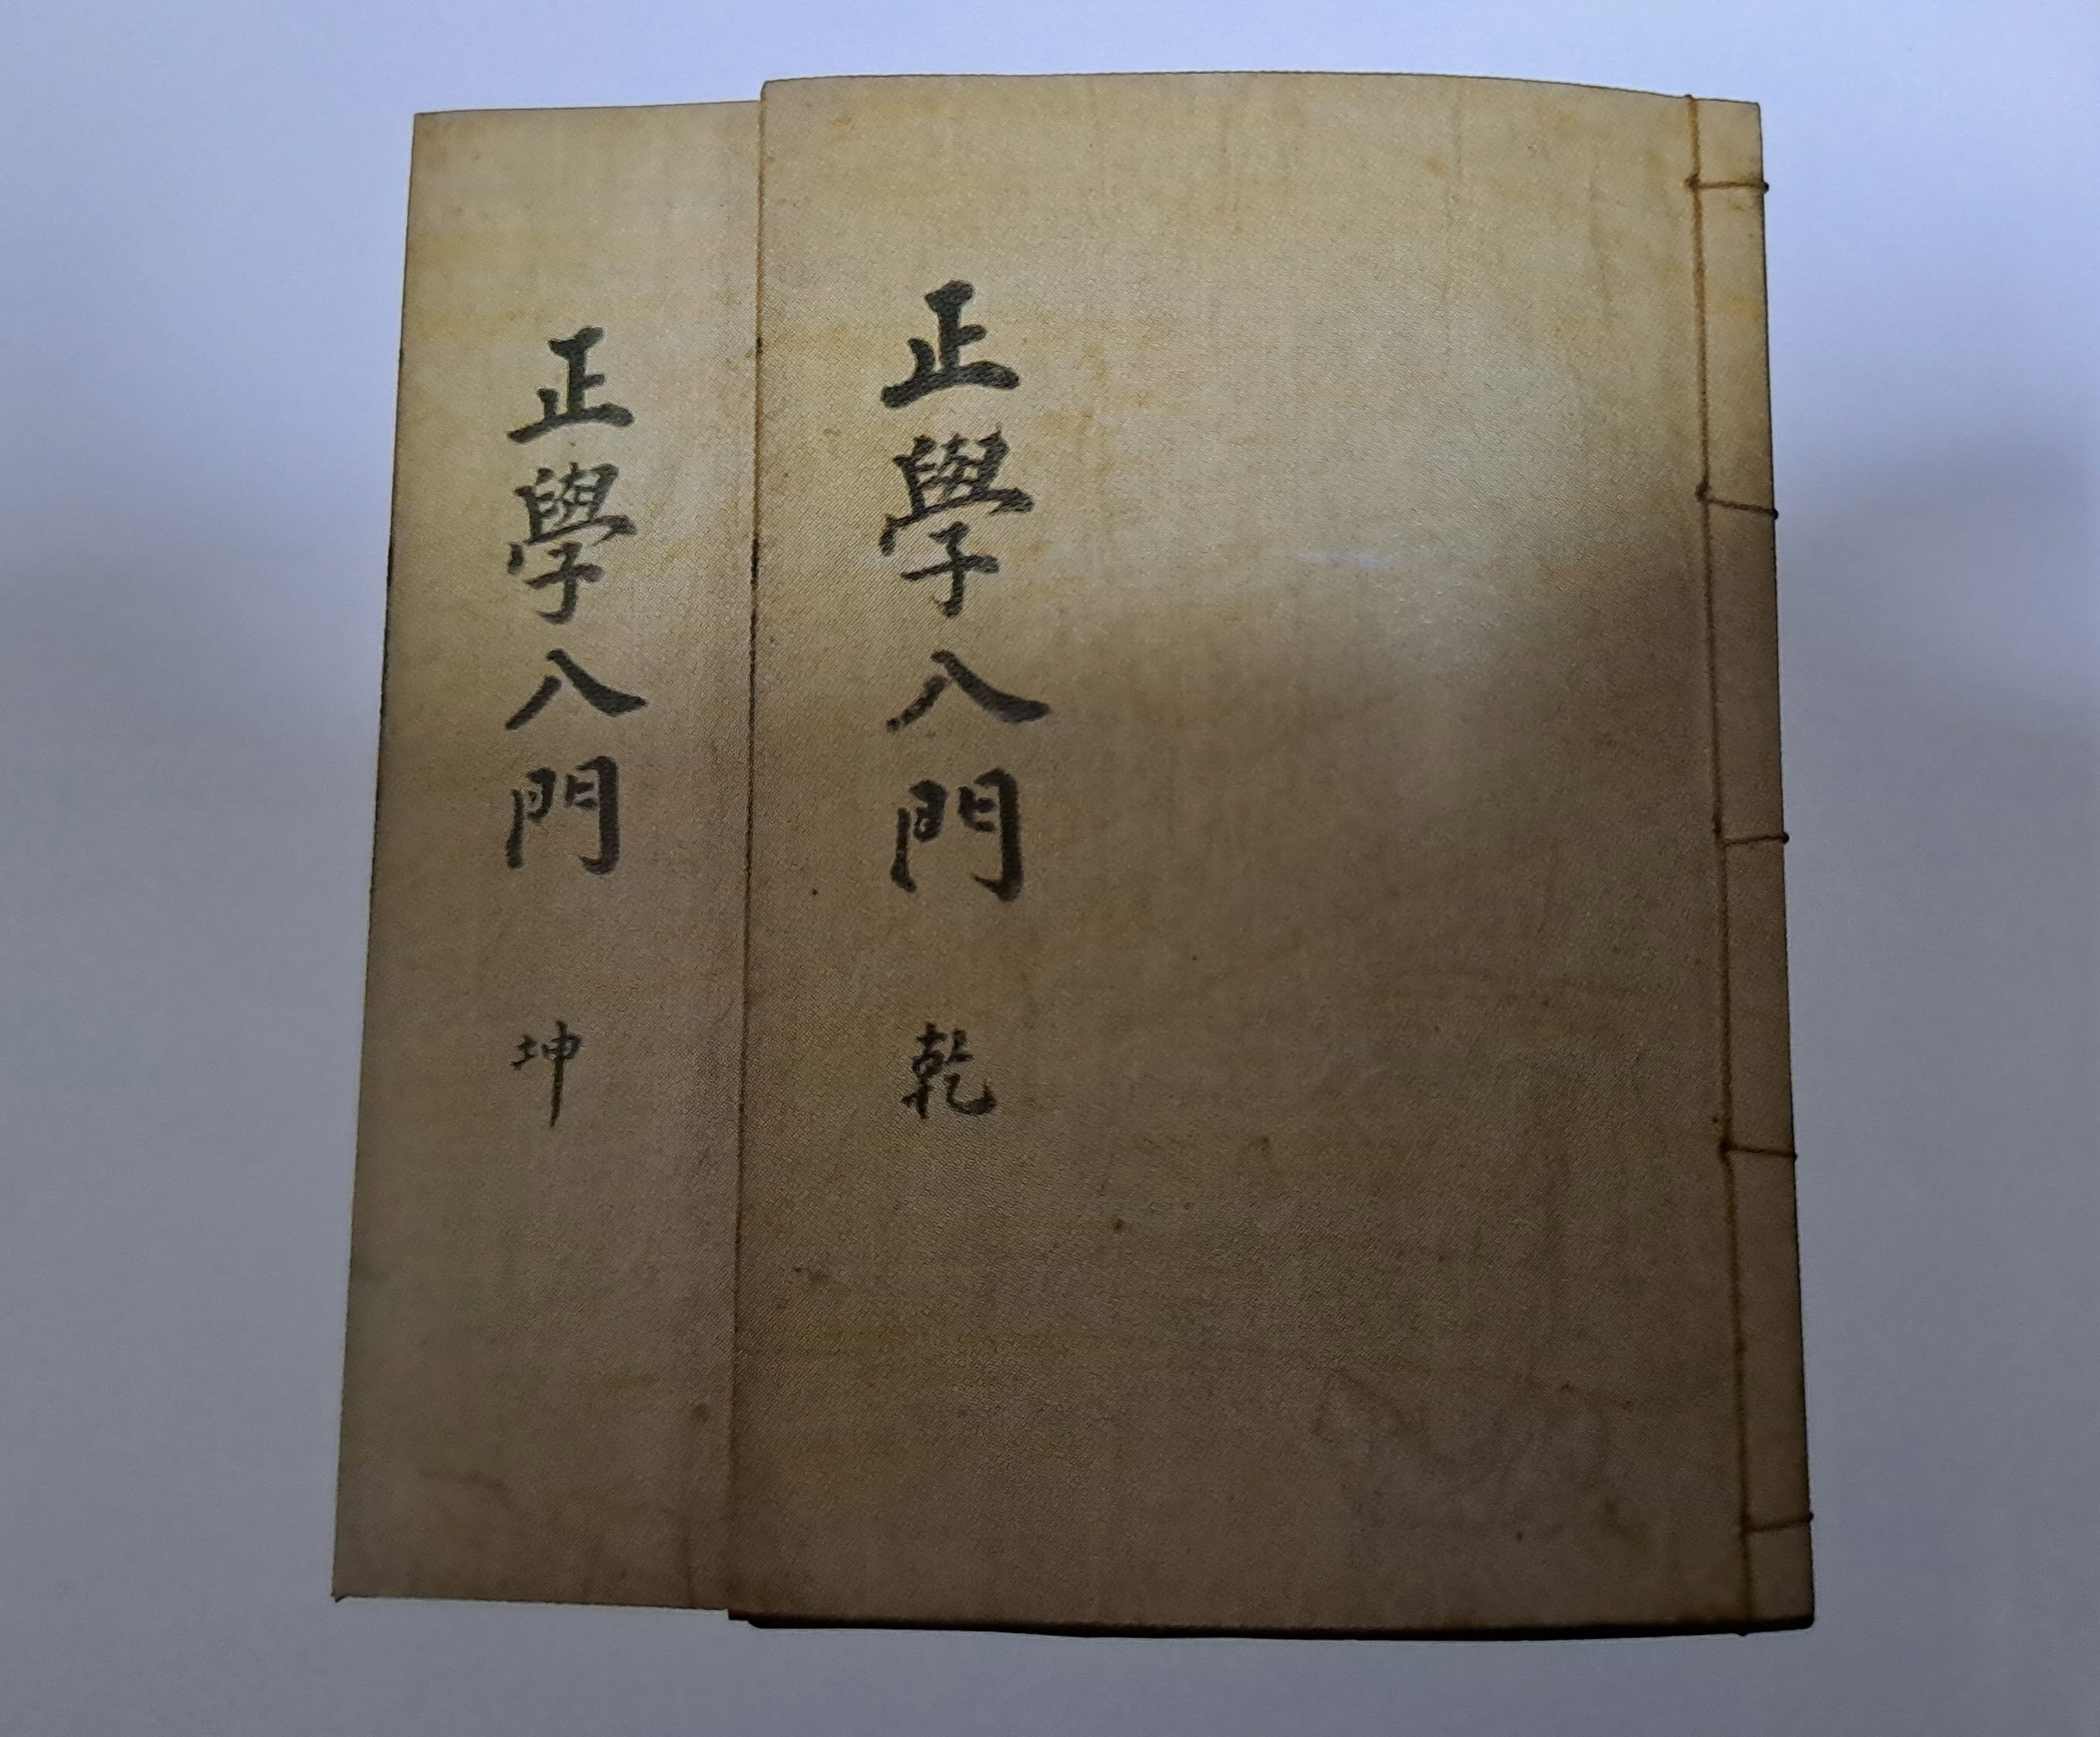 正學入門 乾
正學入門 坤